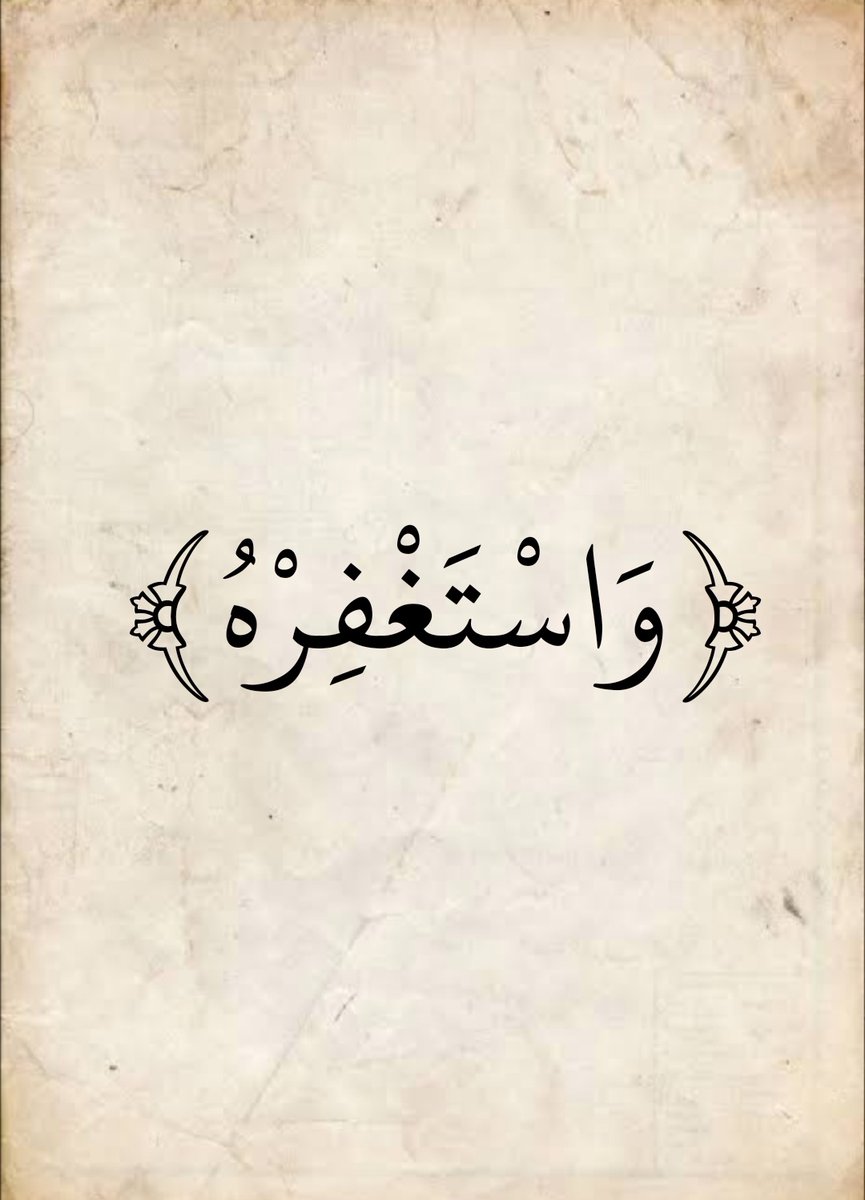 ﴿ وَاسْتَغْفِرْهُ ﴾